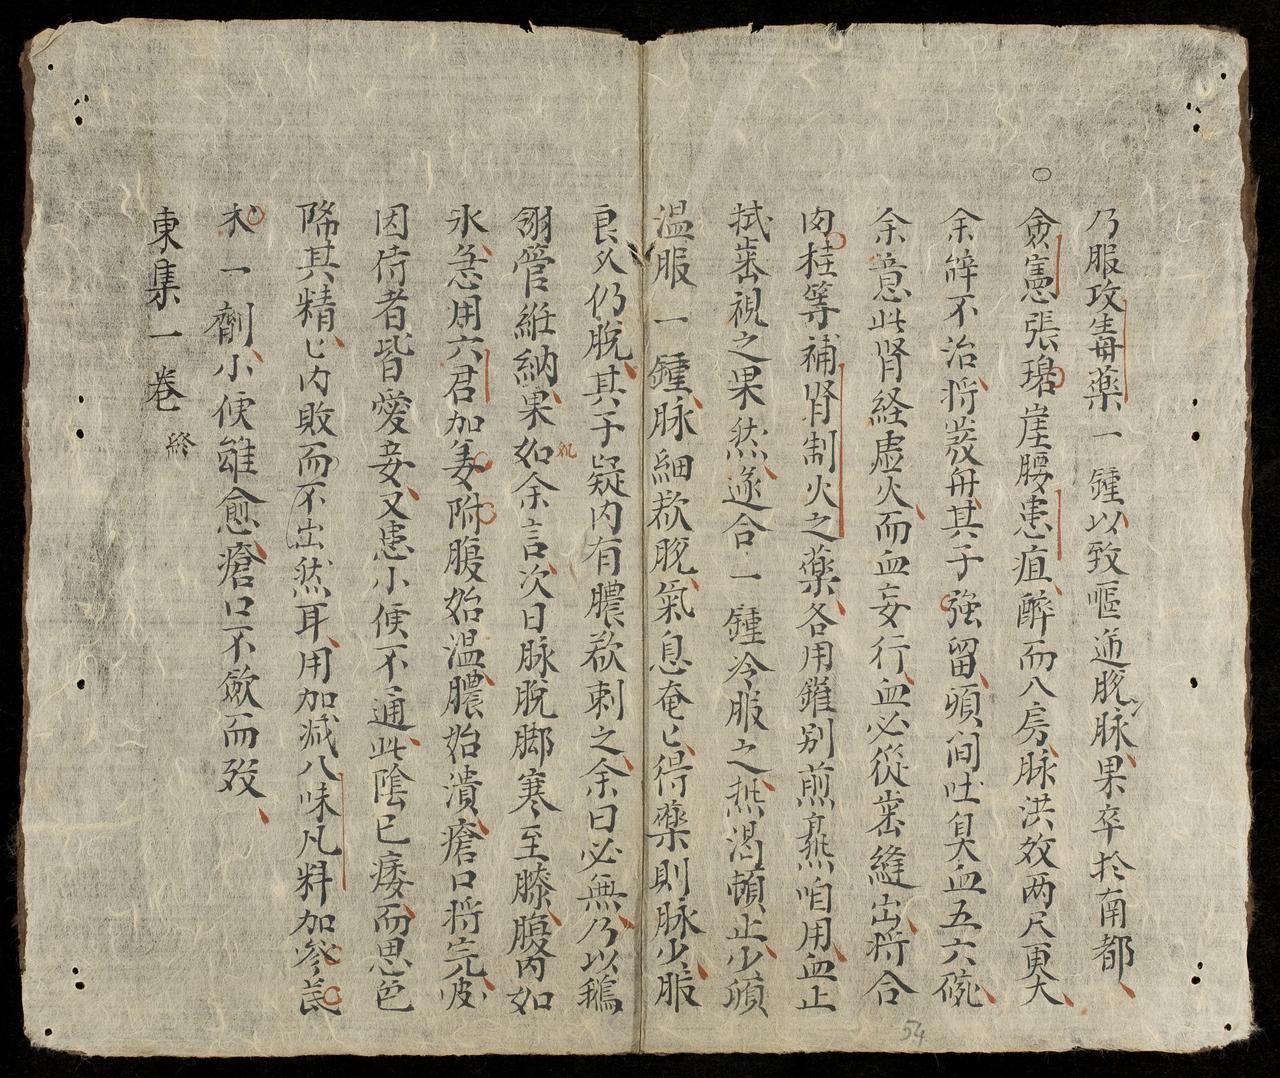 ○
乃服攻毒藥一鍾以致嘔逆脫脉果卒於南都
僉憲張碧崖腰患疽醉而入房脉洪数两尺更大
余辞不治将發舟其子強留頃间吐臭血五六碗
余意此肾経虚火而血妄行血必從齒縫出将合
肉桂等補肾制火之藥各用錐别煎熟咱用血止
拭齒視之果然遂合一鍾冷服之热渴頓止少頃
温服一鍾脉細欲脱氣息奄匕得藥則脉少服
良久仍脫其子疑内有膿欲刺之余曰必無乃以鵝
翎管紝納果如余言次日脉脫脚寒至膝腹内如
氷急用六君加姜附腹始温膿始潰瘡口将完彼
因侍者皆愛妾又患小便不通此陰已痿而思色
降其精匕内敗而不出然耳用加减八味凡料加參茋
朮一劑小便雖愈瘡口不斂而歿
東集一卷
終
54